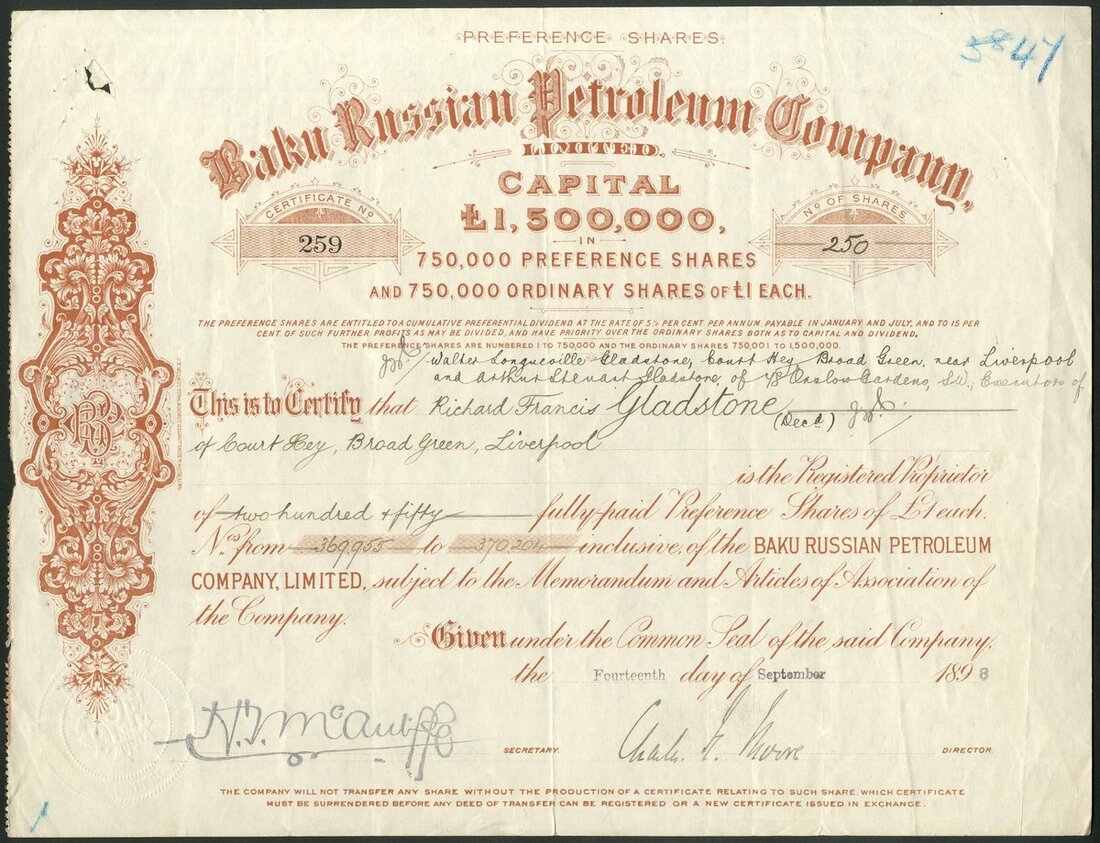 PREFERENCE SHARES.
5847
Baku Russian Petroleum Company,
LIMITED.
CAPITAL
£1,500,000,
CERTIFICATE No
259
No OF SHARES
250
IN
750,000 PREFERENCE SHARES
AND 750,000 ORDINARY SHARES OF £1 EACH.
THE PREFERENCE SHARES ARE ENTITLED TO A CUMULATIVE PREFERENTIAL DIVIDEND AT THE RATE OF 5½ PER CENT. PER ANNUM PAYABLE IN JANUARY AND JULY, AND TO 15 PER
CENT. OF SUCH FURTHER PROFITS AS MAY BE DIVIDED, AND HAVE PRIORITY OVER THE ORDINARY SHARES BOTH AS TO CAPITAL AND DIVIDEND.
THE PREFERENCE SHARES ARE NUMBERED 1 TO 750,000 AND THE ORDINARY SHARES 750,001 TO 1,500,000.
Walter Longueville Gladstone, Court Hey, Broad Green, near Liverpool
and Arthur Steuart Gladstone, of Onslow Gardens, S.W., Executors of
This is to Certify that Richard Francis Gladstone
(Decd)
of Court Hey, Broad Green, Liverpool
is the Registered Proprietor
of two hundred & fifty fully-paid Preference Shares of £1 each.
Nos from 369,955 to 370,204 inclusive, of the BAKU RUSSIAN PETROLEUM
COMPANY, LIMITED, subject to the Memorandum and Articles of Association of
the Company.
Given under the Common Seal of the said Company,
the Fourteenth day of September 1898
H.J. McAuliffe
SECRETARY.
Charles F. Moore
DIRECTOR.
THE COMPANY WILL NOT TRANSFER ANY SHARE WITHOUT THE PRODUCTION OF A CERTIFICATE RELATING TO SUCH SHARE, WHICH CERTIFICATE
MUST BE SURRENDERED BEFORE ANY DEED OF TRANSFER CAN BE REGISTERED OR A NEW CERTIFICATE ISSUED IN EXCHANGE.